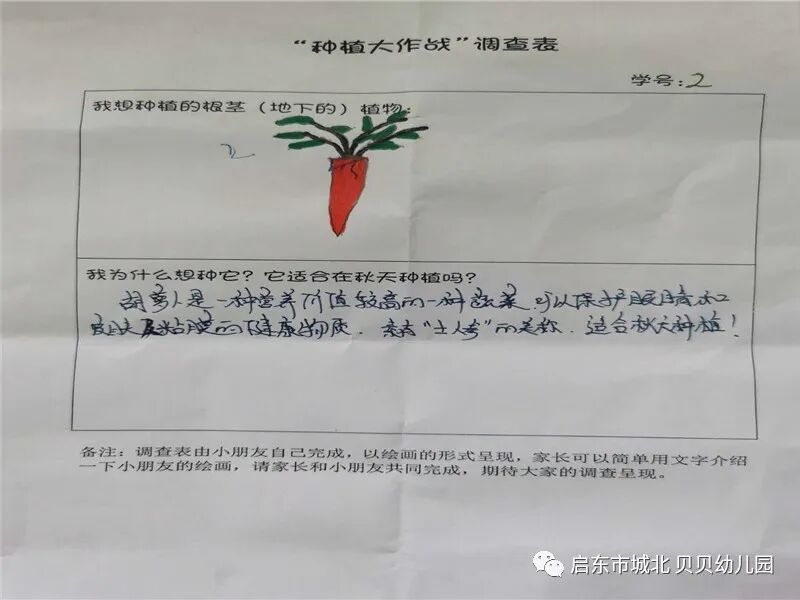 “种植大作战”调查表
学号:2
我想种植的根茎（地下的）植物：
2
我为什么想种它？它适合在秋天种植吗？
胡萝卜是一种营养价值较高的一种蔬菜.可以保护眼睛和
皮肤及粘膜的健康物质.素有“土人参”的美称.适合秋天种植！
备注：调查表由小朋友自己完成，以绘画的形式呈现，家长可以简单用文字介绍
一下小朋友的绘画，请家长和小朋友共同完成，期待大家的调查呈现。
启东市城北 贝贝幼儿园